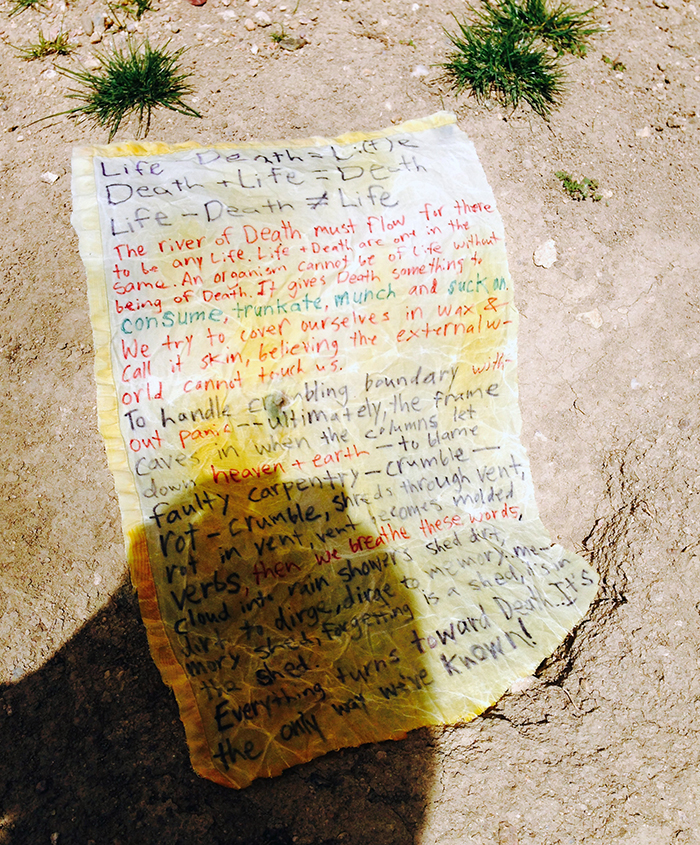 Life - Death = Li(t)e
Death + Life = Death
Life - Death ≠ Life
The river of Death must flow for there
to be any Life. Life + Death are one in the
same. An organism cannot be of Life without
being of Death. It gives Death something to
consume, trunkate, munch and suck on.
We try to cover ourselves in wax &
call it skin, believing the external w-
orld cannot touch us.
To handle crumbling boundary with-
out panic -- ultimately, the frame
caves in when the columns let
down heaven + earth — to blame
faulty carpentry — crumble —
rot - crumble, shreds through vent,
rot in vent, vent becomes molded
verbs, then we breathe these words,
cloud into rain showers shed dirt,
dirt to dirge, dirge to memory, me-
mory shed, forgetting is a shed, it's in
the shed.
Everything turns toward Death. It's
the only way we've known!